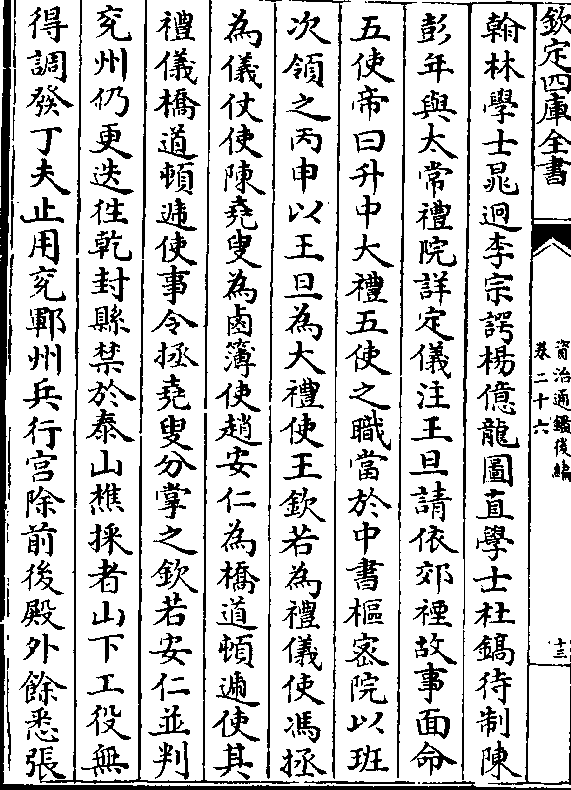 欽定四庫全書
資治通鑑後編
卷二十六
十三
翰林學士晁迥李宗諤楊億龍圖直學士杜鎬待制陳
彭年與太常禮院詳定儀注王旦請依郊禋故事面命
五使帝曰升中大禮五使之職當於中書樞宻院以班
次領之丙申以王旦為大禮使王欽若為禮儀使馮拯
為儀仗使陳堯叟為鹵簿使趙安仁為橋道頓逓使其
禮儀橋道頓逓使事令拯堯叟分掌之欽若安仁並判
兖州仍更迭徃乾封縣禁於泰山樵採者山下工役無
得調發丁夫止用兖鄆州兵行宫除前後殿外餘悉張